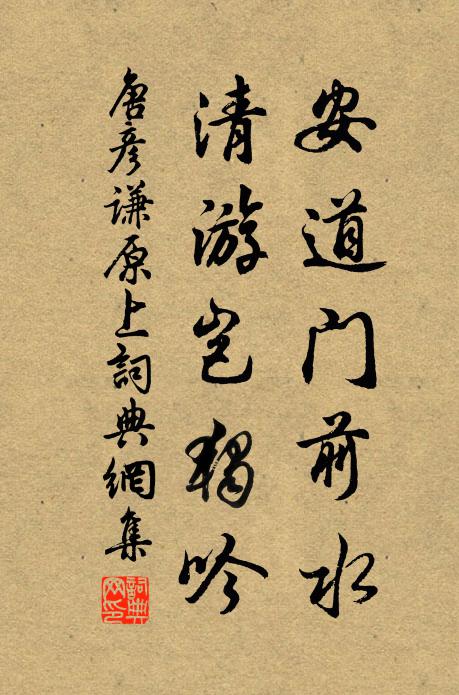 安道门前水
清游岂独吟
唐彦谦原上詞典網集
詞典网印